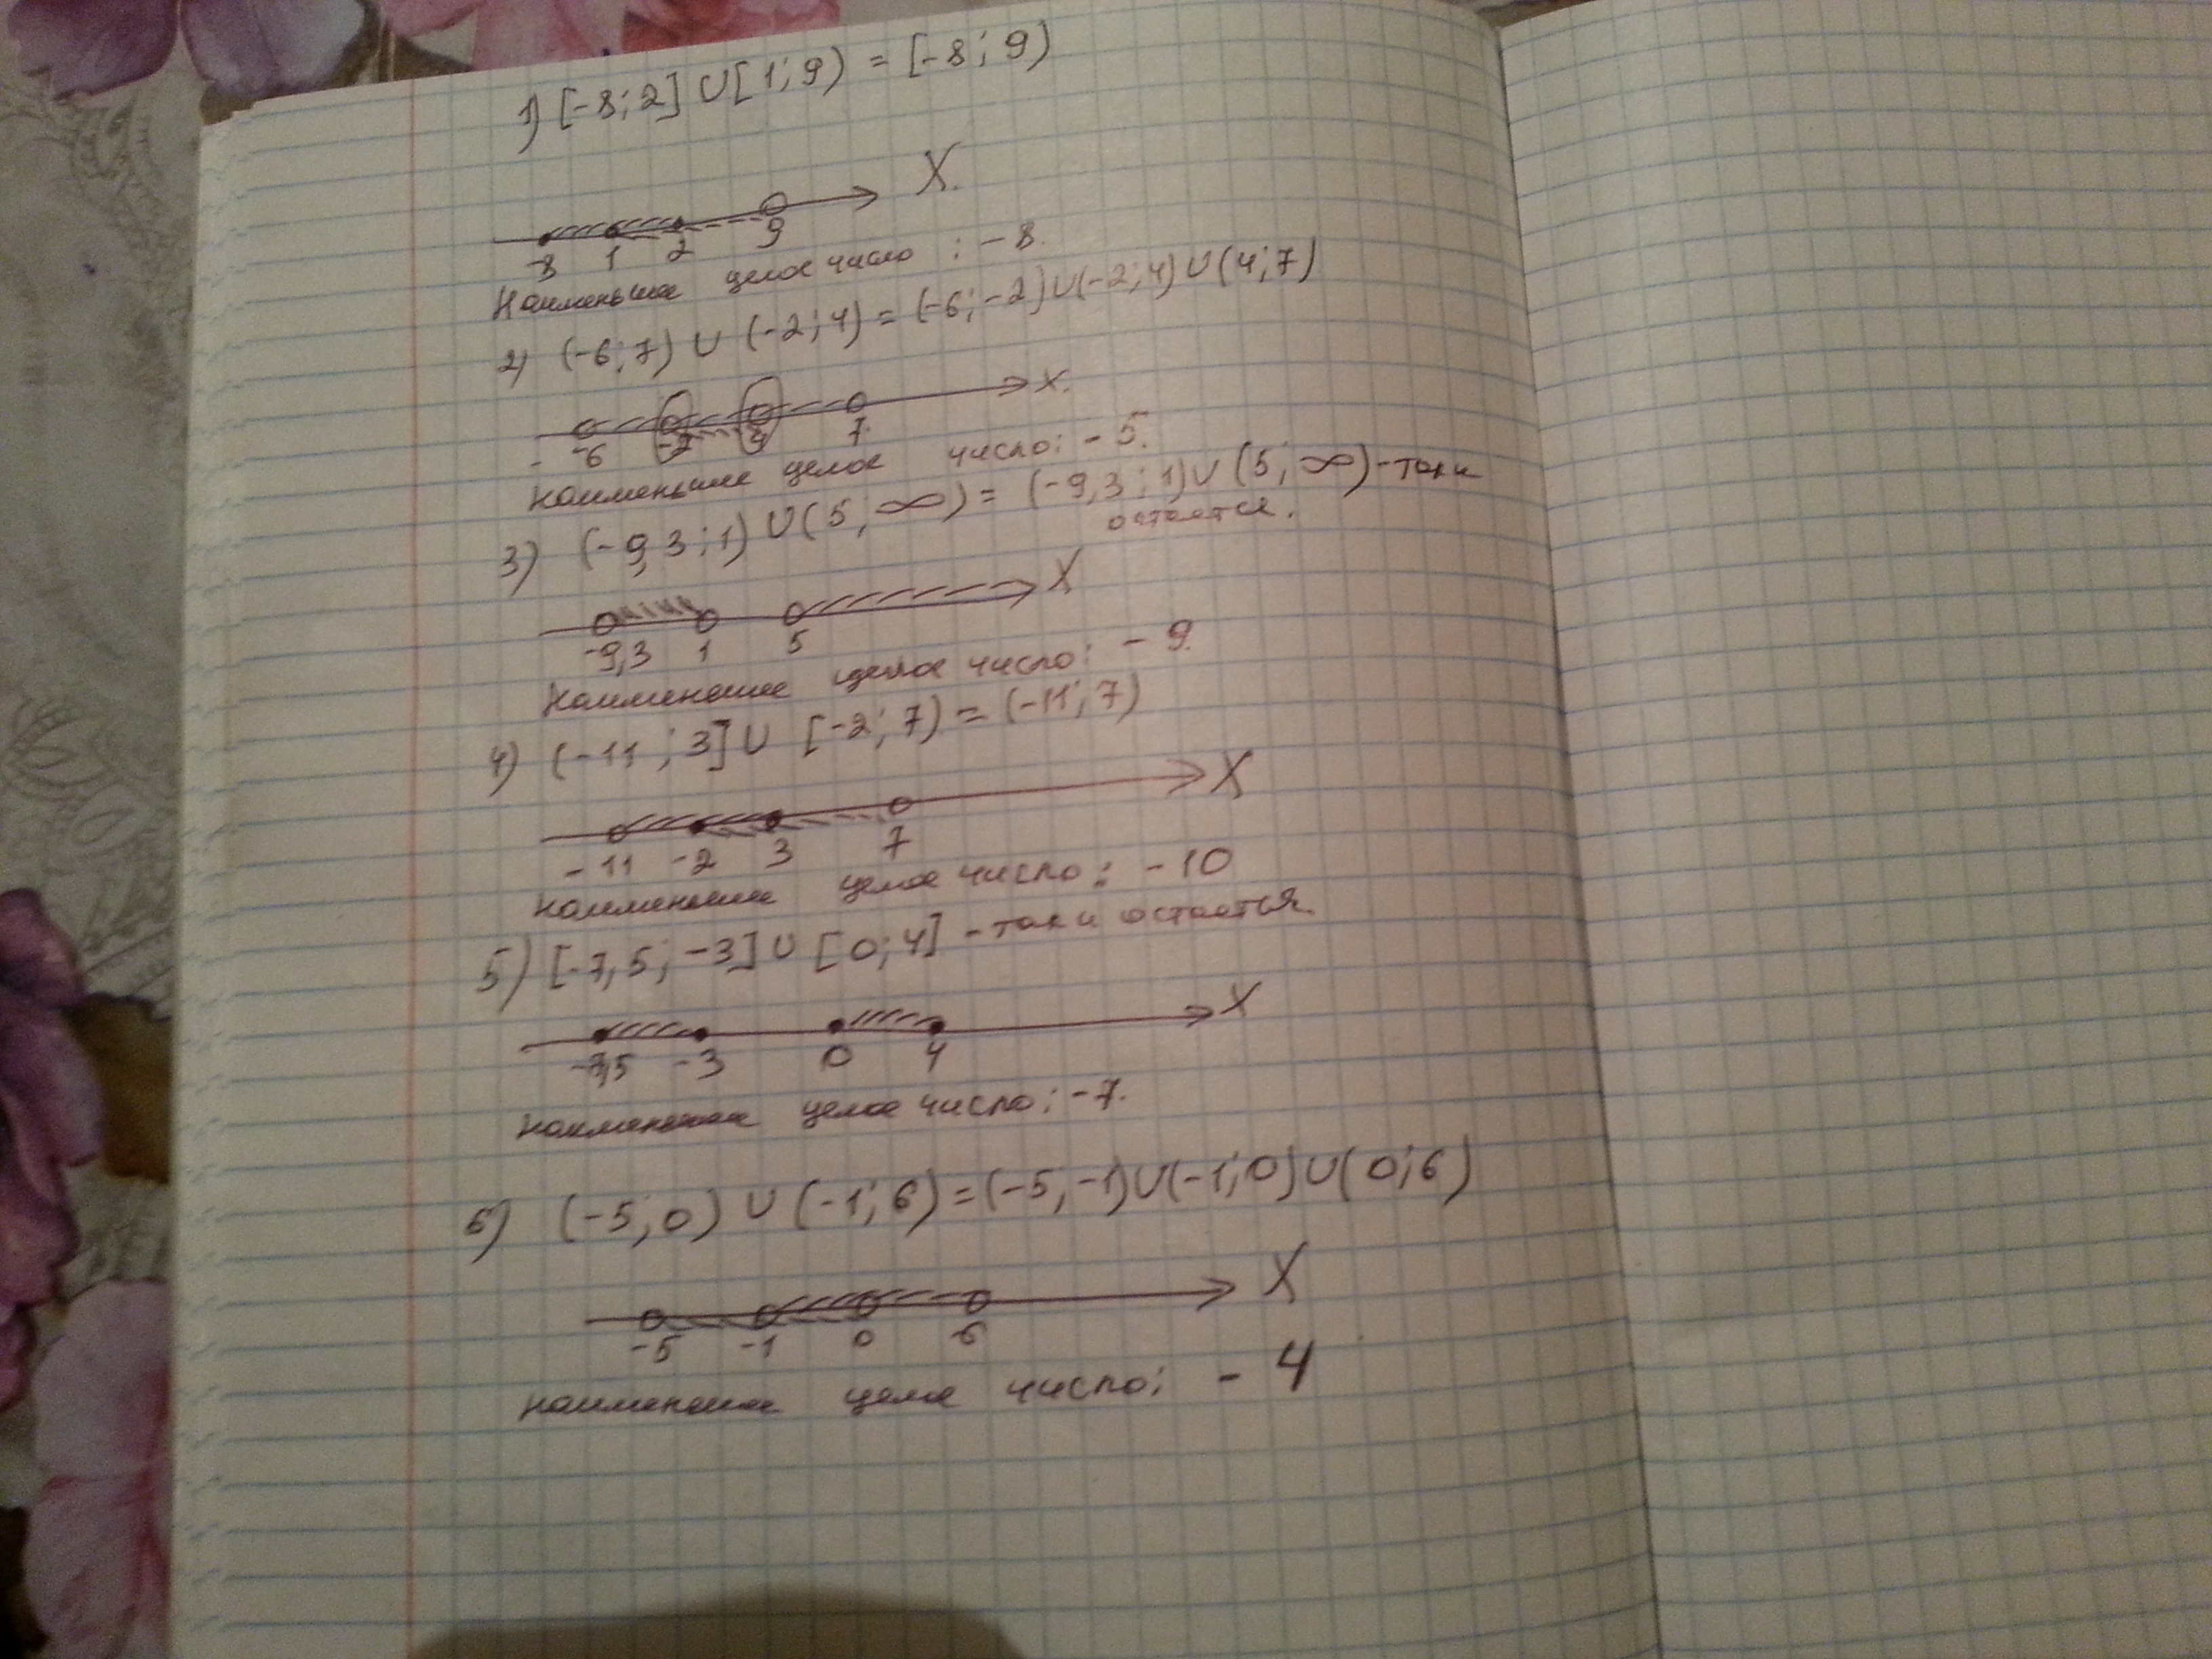 1) [-8; 2] ∪ [1; 9) = [-8; 9)
X
-8 1 2 9
Наименьшее целое число: -8.
2) (-6; 7) ∪ (-2; 4) = (-6; -2) ∪ (-2; 4) ∪ (4; 7)
X
-6 -2 4 7
Наименьшее целое число: -5.
3) (-9,3; 1) ∪ (5; ∞) = (-9,3; 1) ∪ (5; ∞) - так и
остается.
X
-9,3 1 5
Наименьшее целое число: -9.
4) (-11; 3] ∪ [-2; 7) = (-11; 7)
X
-11 -2 3 7
Наименьшее целое число: -10
5) [-7,5; -3] ∪ [0; 4] - так и остается.
X
-7,5 -3 0 4
Наименьшее целое число: -7.
6) (-5; 0) ∪ (-1; 6) = (-5, -1) ∪ (-1; 0) ∪ (0; 6)
X
-5 -1 0 6
Наименьшее целое число: -4